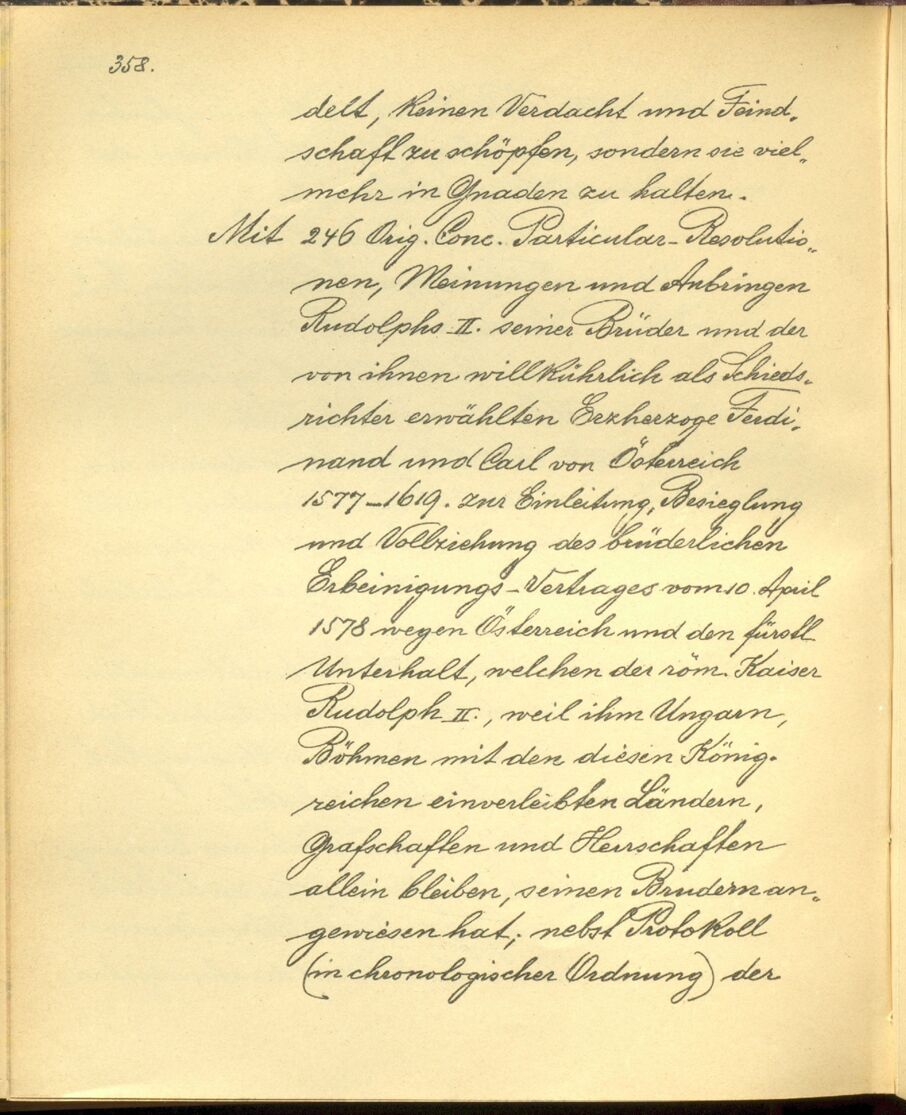 358.
delt, keinen Verdacht und Feind„
schaft zu schöpfen, sondern sie viel„
mehr in Gnaden zu halten.
Mit 246 Orig. Conc. Particular-Resolutio„
nen, Meinungen und Anbringen
Rudolphs II. seiner Brüder und der
von ihnen willkührlich als Schieds„
richter erwählten Erzherzoge Ferdi„
nand und Carl von Österreich
1577–1619. zur Einleitung, Besieglung
und Vollziehung des brüderlichen
Erbeinigungs-Vertrages vom 10. April
1578 wegen Österreich und den fürstl
Unterhalt, welchen der röm. Kaiser
Rudolph II., weil ihm Ungarn,
Böhmen mit den diesen König„
reichen einverleibten Ländern,
Grafschaften und Herrschaften
allein bleiben, seinen Brudern an„
gewiesen hat; nebst Protokoll
(in chronologischer Ordnung) der